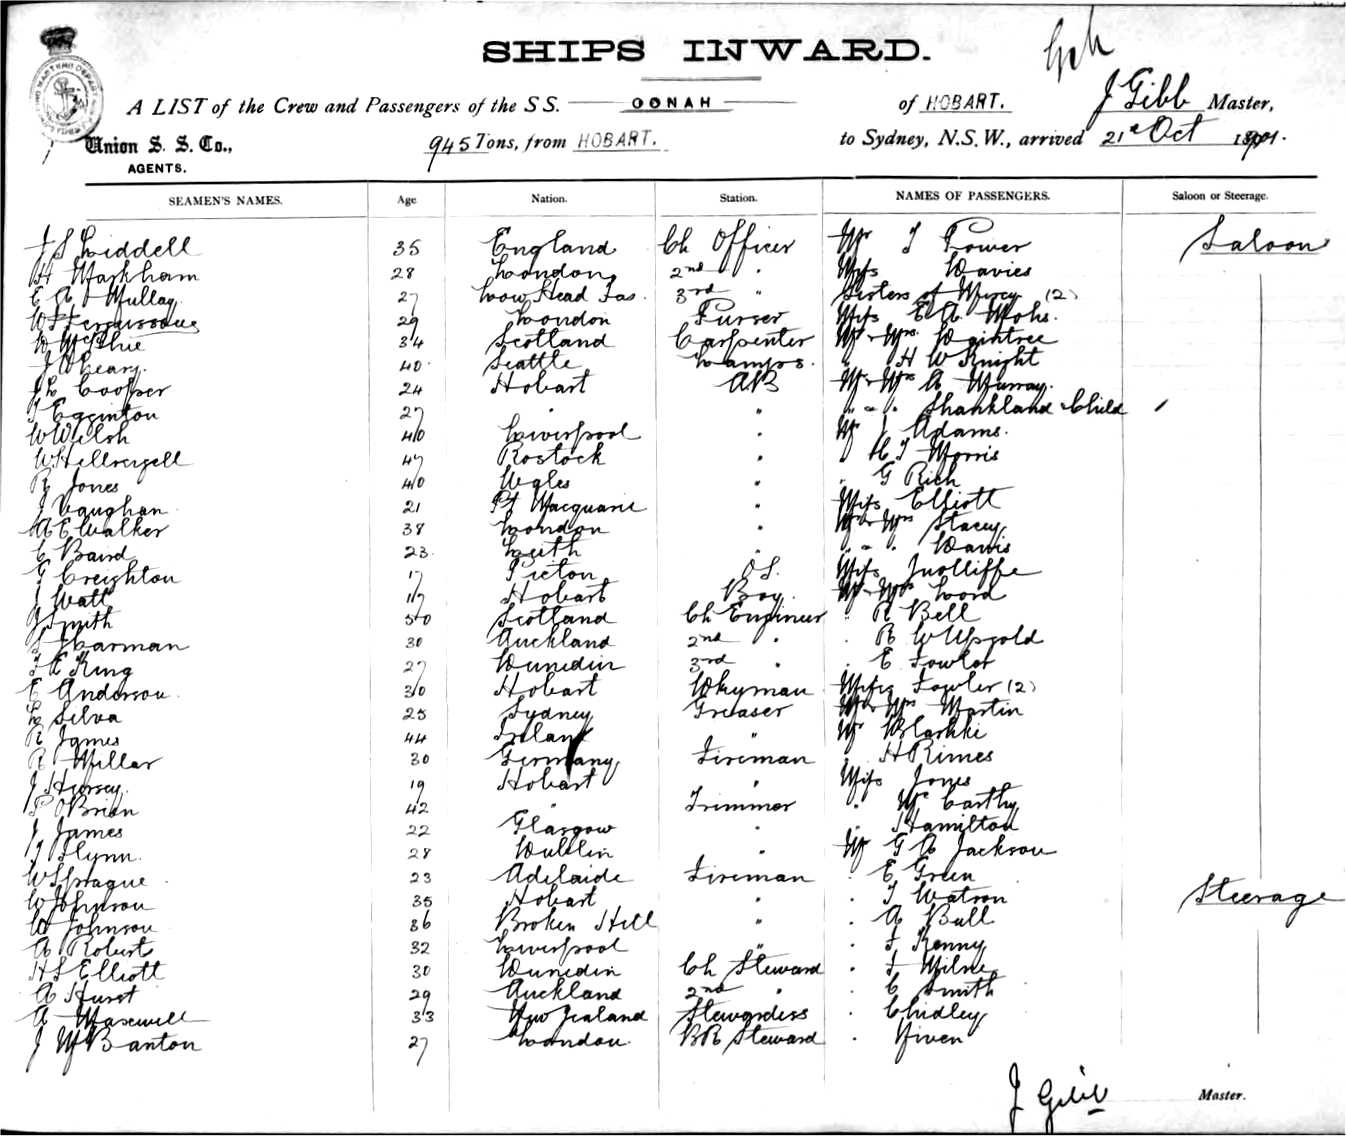 SHIPS INWARD.
A LIST of the Crew and Passengers of the S S. OONAH of HOBART. J Gibb Master,
Union S. S. Co., 945 Tons, from HOBART. to Sydney, N.S.W., arrived 21st Oct 1901.
AGENTS.
SEAMEN'S NAMES. Age Nation. Station. NAMES OF PASSENGERS. Saloon or Steerage.
J S Liddell 35 England Ch Officer Mr T Power Saloon
H Markham 28 London 2nd " Miss Davies
E A Mullay 27 Low Head Tas. 3rd " Sisters of Mercy (2)
W Fergusson 29 London Purser Miss E A Mohs.
W McPhie 34 Scotland Carpenter Mr Mrs Daintree
J W Geary. 40 Seattle Lamps. " H W Knight
J L Cooper 24 Hobart AB Mr Mrs A Murray.
T Egginton 27 " " " " " Shankland Child 1
W Welsh 40 Liverpool " Mr J Adams.
W Hellreigell 47 Rostock " " H J Morris
R Jones 40 Wales " " G Rich
J Vaughan 21 Pt Macquarie " Miss Elliott
A E Walker 38 London " Mr Mrs Stacey
C Baird 23 Leith " " " " Davis
G Creighton 17 Picton OS. Miss Jnolliffe
J Watt 17 Hobart Boy. Mr Mrs Lord
J Smith 50 Scotland Ch Engineer " R Bell
Harman 30 Auckland 2nd " " R W Upsold
F E King 27 Dunedin 3rd " " E Fowler
E Anderson 30 Hobart Wheyman Misses Fowler (2)
L Silva 25 Sydney Greaser Mr Mrs Martin
R James 44 Ireland " Mr Blashki
R Millar 30 Germany Fireman " H Rimes
J Hursey. 19 Hobart " Miss Jones
P O'Brien 42 " Trimmer " McCarthy
J James 22 Glasgow " " Hamilton
J Flynn. 28 Dublin " Mr G A Jackson
W Sprague 23 Adelaide Fireman " E Green
W Johnson 35 Hobart " " T Watson Steerage
W Johnson 36 Broken Hill " " A Bull
A Robert 32 Liverpool " " F Kenny
H S Elliott 30 Dunedin Ch Steward " F Milne
A Hurst 29 Auckland 2nd " " C Smith
A Maxwell 33 New Zealand Stewardess " Chidley
J McBanton 27 London. BR Steward " Niven
J Gibb Master.